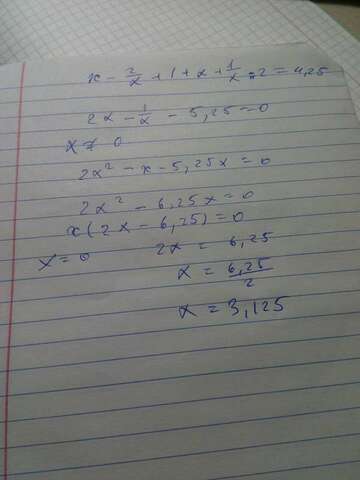 x - 2/x + 1 + x + 1/x - 2 = 4,25
2x - 1/x - 5,25 = 0
x ≠ 0
2x² - x - 5,25x = 0
2x² - 6,25x = 0
x(2x - 6,25) = 0
x = 0 2x = 6,25
x = 6,25/2
x = 3,125